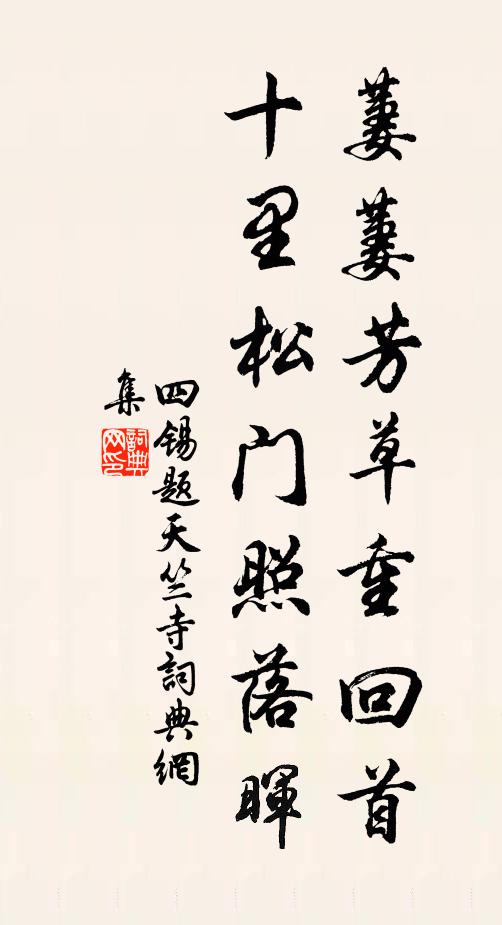 萋萋芳草重回首
十里松门照落暉
四锡题天竺寺詞典網
集
詞典
网印